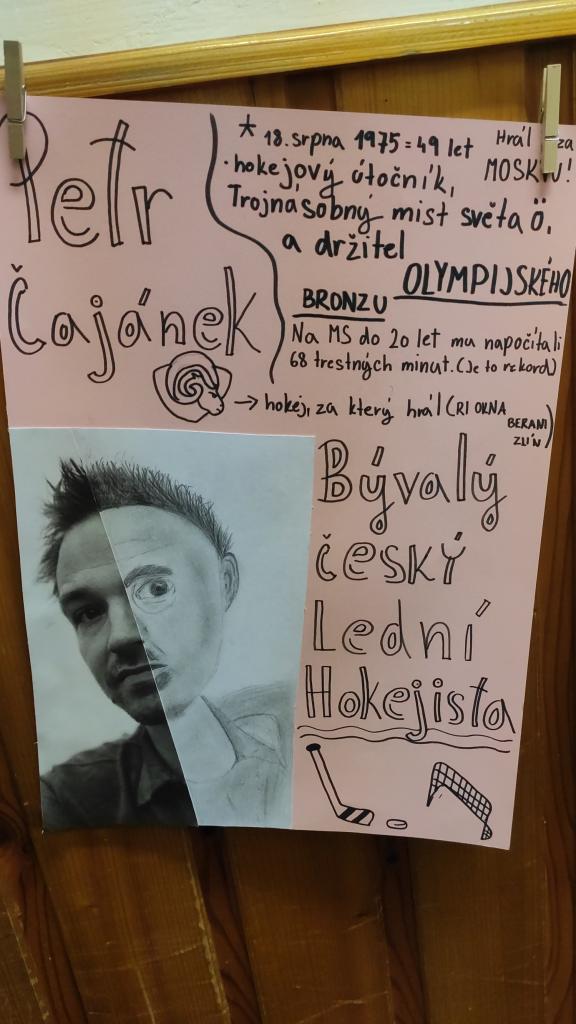 Petr
Čajánek
* 18. srpna 1975 = 49 let
• hokejový útočník,
Trojnásobný mist světa Ö,
a držitel
OLYMPIJSKÉHO
BRONZU
Hrál za
MOSKVU!
Na MS do 20 let mu napočítali
68 trestných minut. (Je to rekord)
→ hokej, za který hrál (RI OKNA
BERANI
ZLÍN)
Bývalý
český
Lední
Hokejista